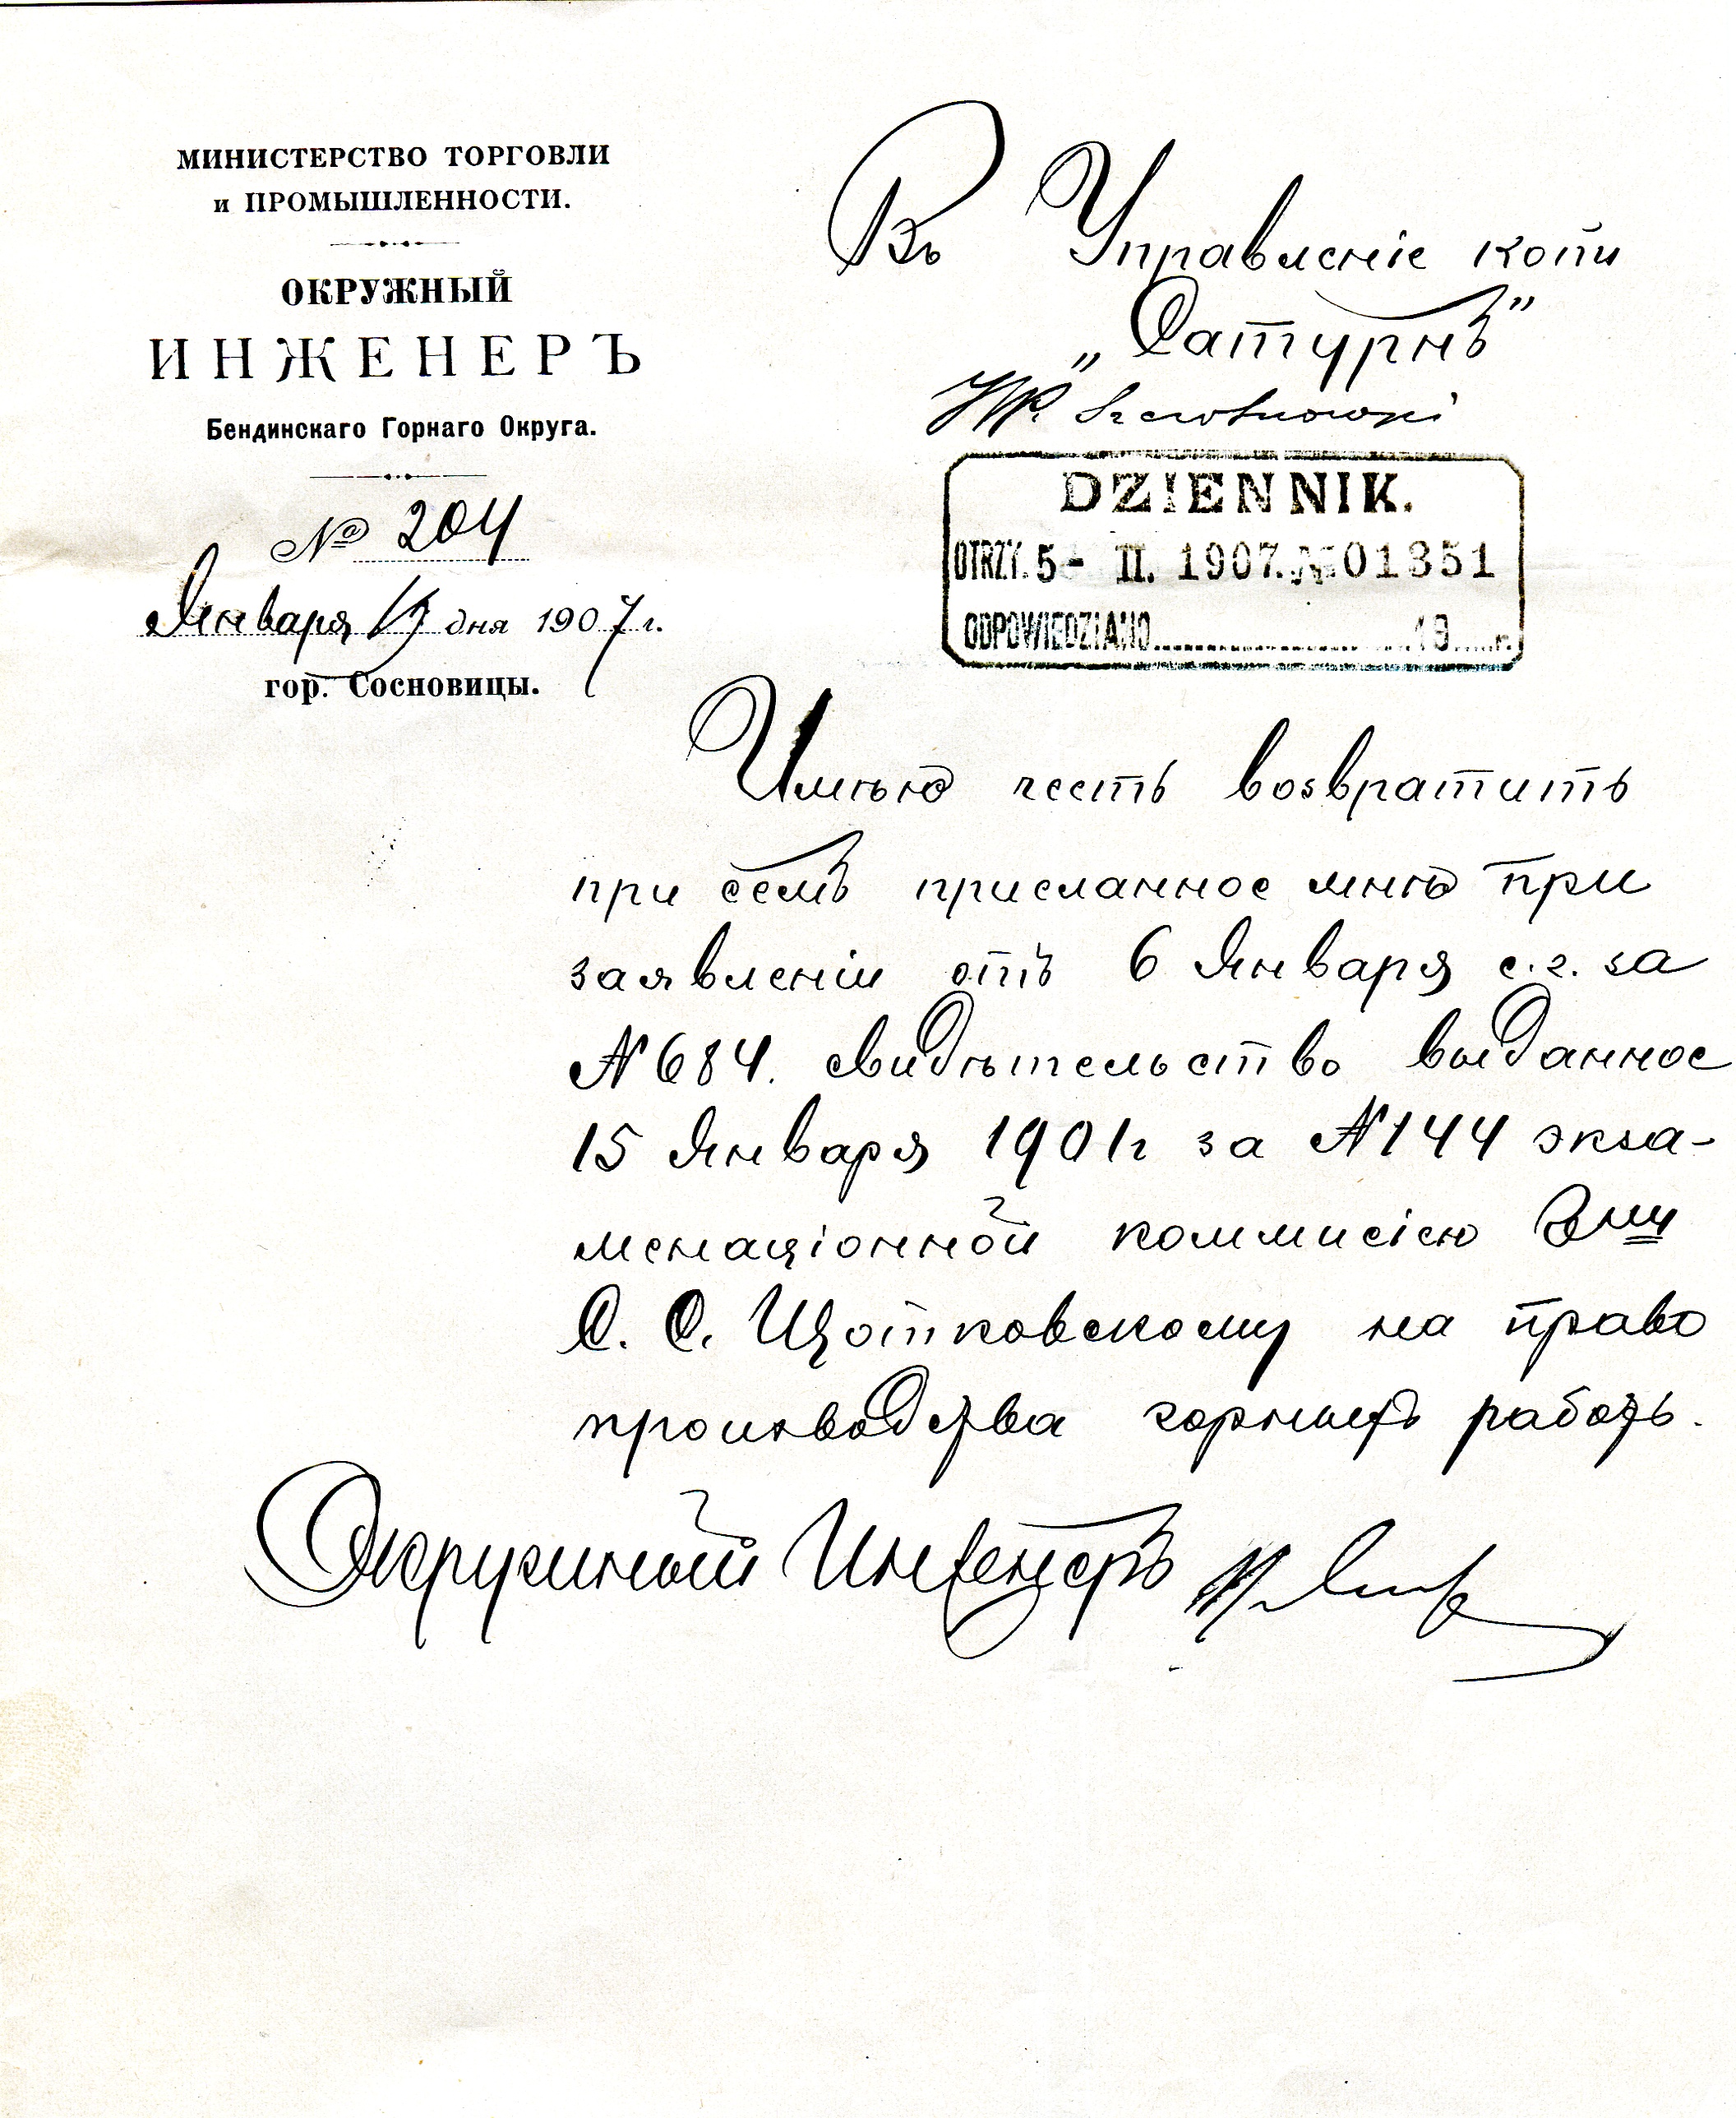 МИНИСТЕРСТВО ТОРГОВЛИ
и ПРОМЫШЛЕННОСТИ.
ОКРУЖНЫЙ
ИНЖЕНЕРЪ
Бендинскаго Горнаго Округа.
№ 204
Января дня 1907 г.
гор. Сосновицы.
Въ Управленіе копи
„Сатурнъ"
DZIENNIK.
OTRZY. 5- II. 1907. № 01351
ODPOWIEDZIANO 19 r.
Имѣю честь возвратить
при семъ присланное мнѣ при
заявленіи отъ 6 Января с.г. за
№ 684. свидѣтельство выданное
15 Января 1901 г за № 144 экза-
менаціонной коммисіею
С. О. Щотковскому на право
производства горныхъ работъ.
Окружный Инженеръ